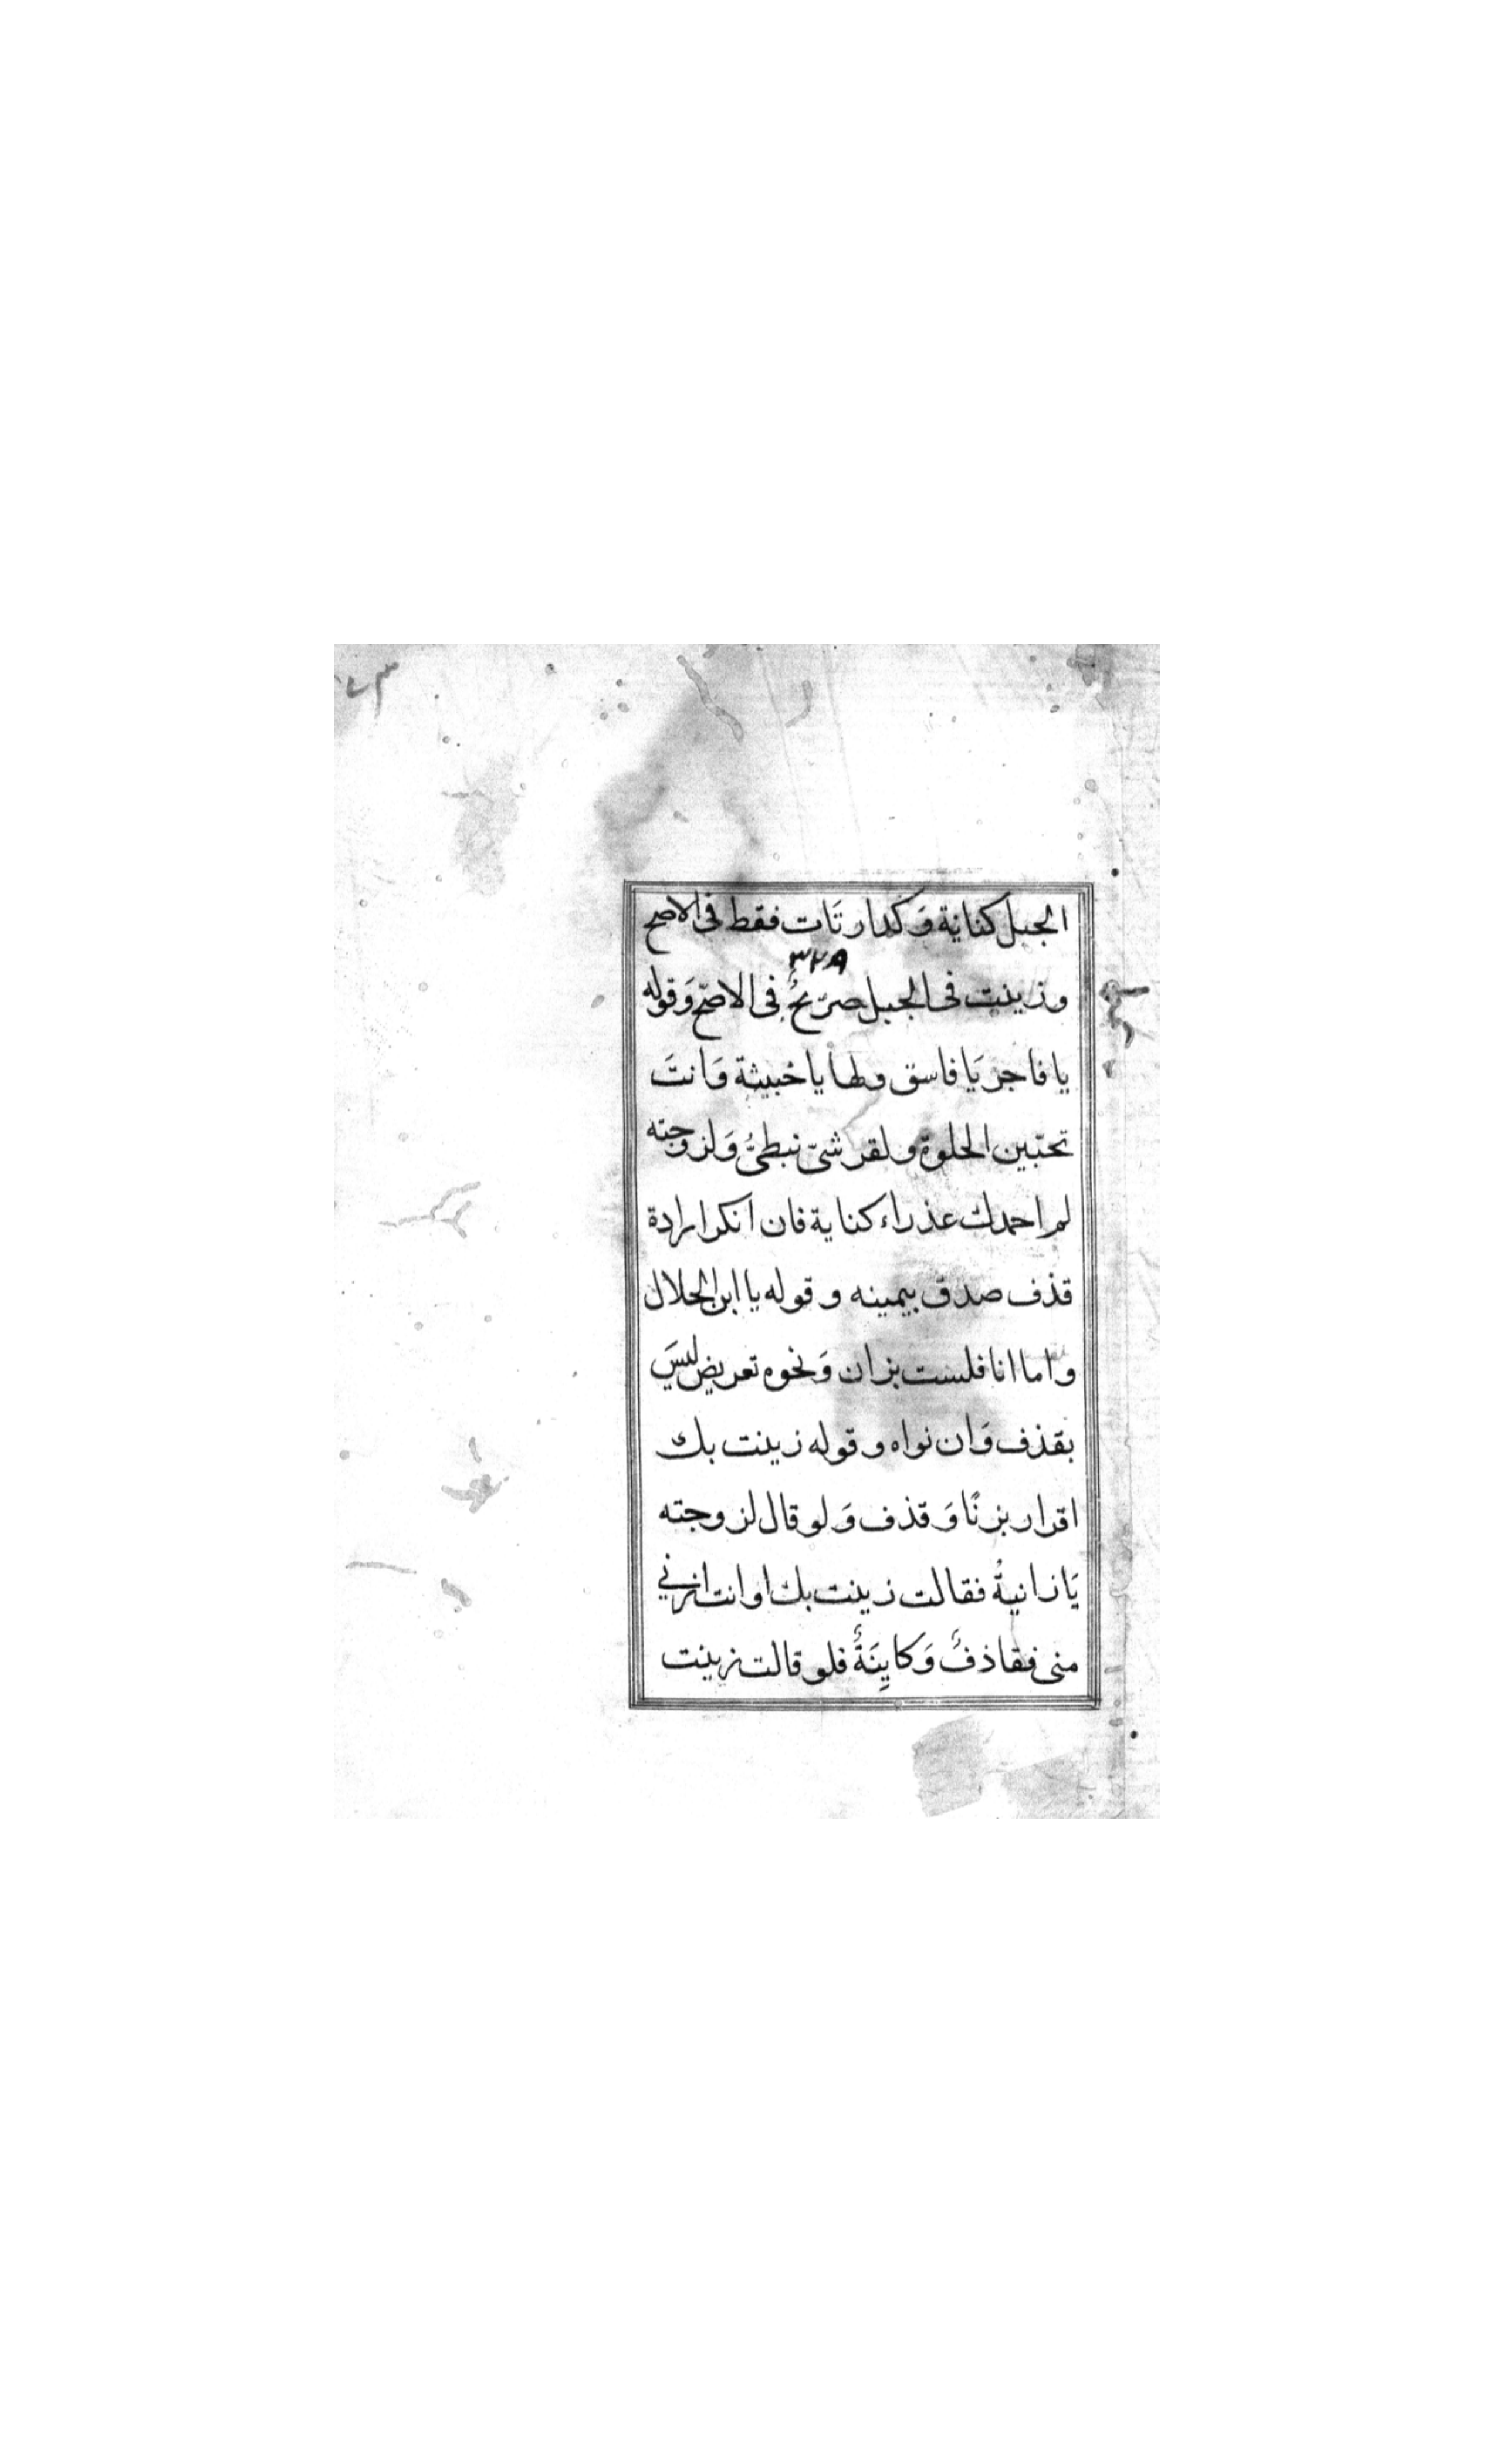 الجبل كناية وَكدا رتَات فقط فى الاصح
٣٢٩
وزينت فى الجبل صرّيحٌ فى الاصحّ وَقوله
يا فاجر يَا فاسق ولها يا خبيثة وَانتَ
تحبّين الخلوة ولقرشىّ نبطىُّ وَلزوجته
لم احدك عذراء كناية فان انكر ارادة
قذف صدق بيمينه وقوله يا ابن الحلال
واما انا فلست بزان وَنحوه تعريض ليسَ
بقذف وَان نواه وقوله زينت بك
اقرار بزنًا وَقذف وَلو قال لزوجته
يَا زانيةُ فقالت زينت بك او انت ازني
منى فقاذفٌ وَكايِنَةٌ فلو قالت زينت